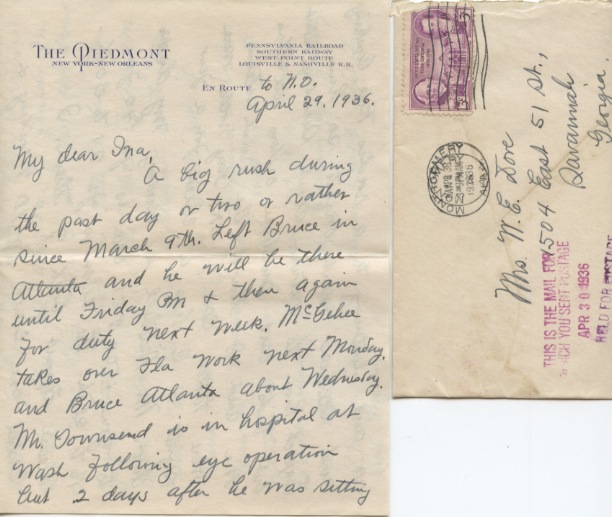 THE PIEDMONT
NEW YORK-NEW ORLEANS
PENNSYLVANIA RAILROAD
SOUTHERN RAILWAY
WEST POINT ROUTE
LOUISVILLE & NASHVILLE R.R.
EN ROUTE to N.O.
April 29, 1936.
My dear Ina,
A big rush during
the past day or two or rather
since March 9th. Left Bruce in
Atlanta and he will be there
until Friday PM & then again
for duty next week. McGehee
takes over Fla work next Monday.
and Bruce Atlanta about Wednesday.
Mr. Townsend is in hospital at
Wash following eye operation
but 2 days after he was sitting
MONTGOMERY
1936
Mrs. W. E. Dove
1504 East 51 St.,
Savannah
Georgia.
THIS IS THE MAIL FOR
WHICH YOU SENT POSTAGE
APR 30 1936
HELD FOR POSTAGE